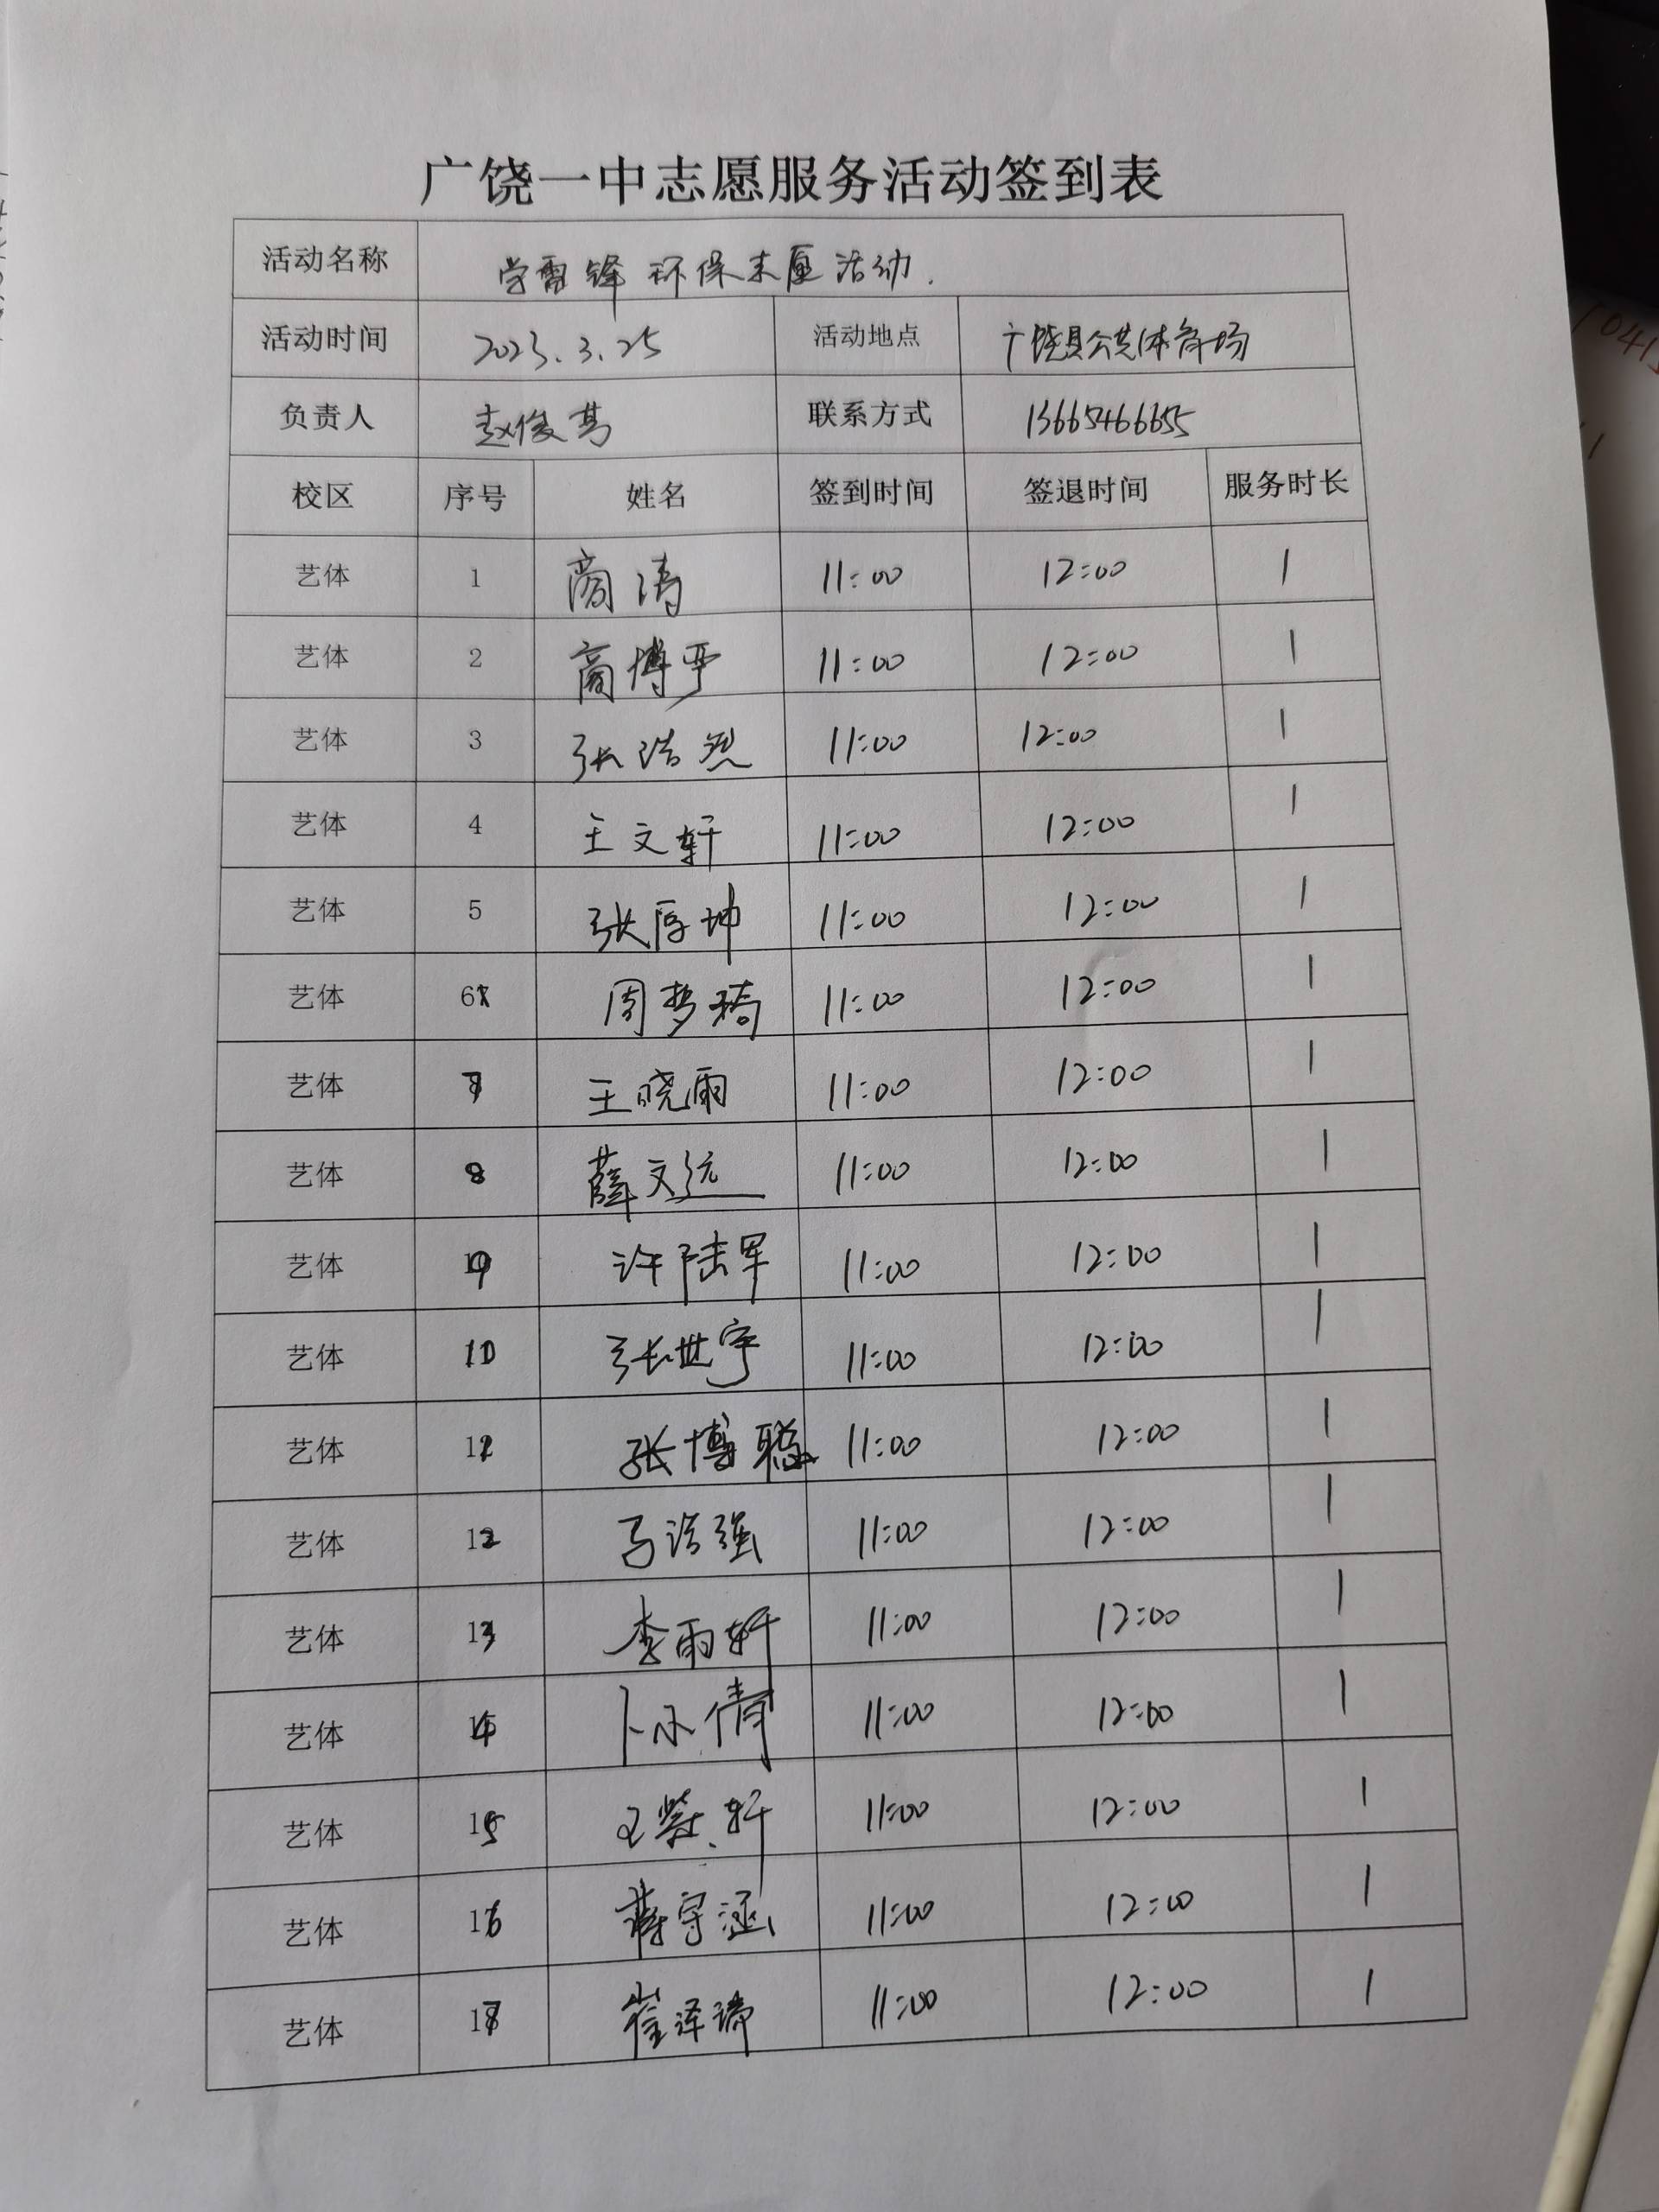 广饶一中志愿服务活动签到表
活动名称 学雷锋环保志愿活动.
活动时间 2023.3.25 活动地点 广饶县公共体育场
负责人 赵俊 联系方式 13665466655
校区 序号 姓名 签到时间 签退时间 服务时长
艺体 1 商涛 11:00 12:00 1
艺体 2 商博严 11:00 12:00 1
艺体 3 张浩然 11:00 12:00 1
艺体 4 王文轩 11:00 12:00 1
艺体 5 张厚坤 11:00 12:00 1
艺体 6 周梦琦 11:00 12:00 1
艺体 7 王晓雨 11:00 12:00 1
艺体 8 薛文远 11:00 12:00 1
艺体 9 许陆军 11:00 12:00 1
艺体 10 张世宇 11:00 12:00 1
艺体 11 张博聪 11:00 12:00 1
艺体 12 马浩强 11:00 12:00 1
艺体 13 李雨轩 11:00 12:00 1
艺体 14 卜小倩 11:00 12:00 1
艺体 15 王紫轩 11:00 12:00 1
艺体 16 蒋守涵 11:00 12:00 1
艺体 17 崔泽瑞 11:00 12:00 1